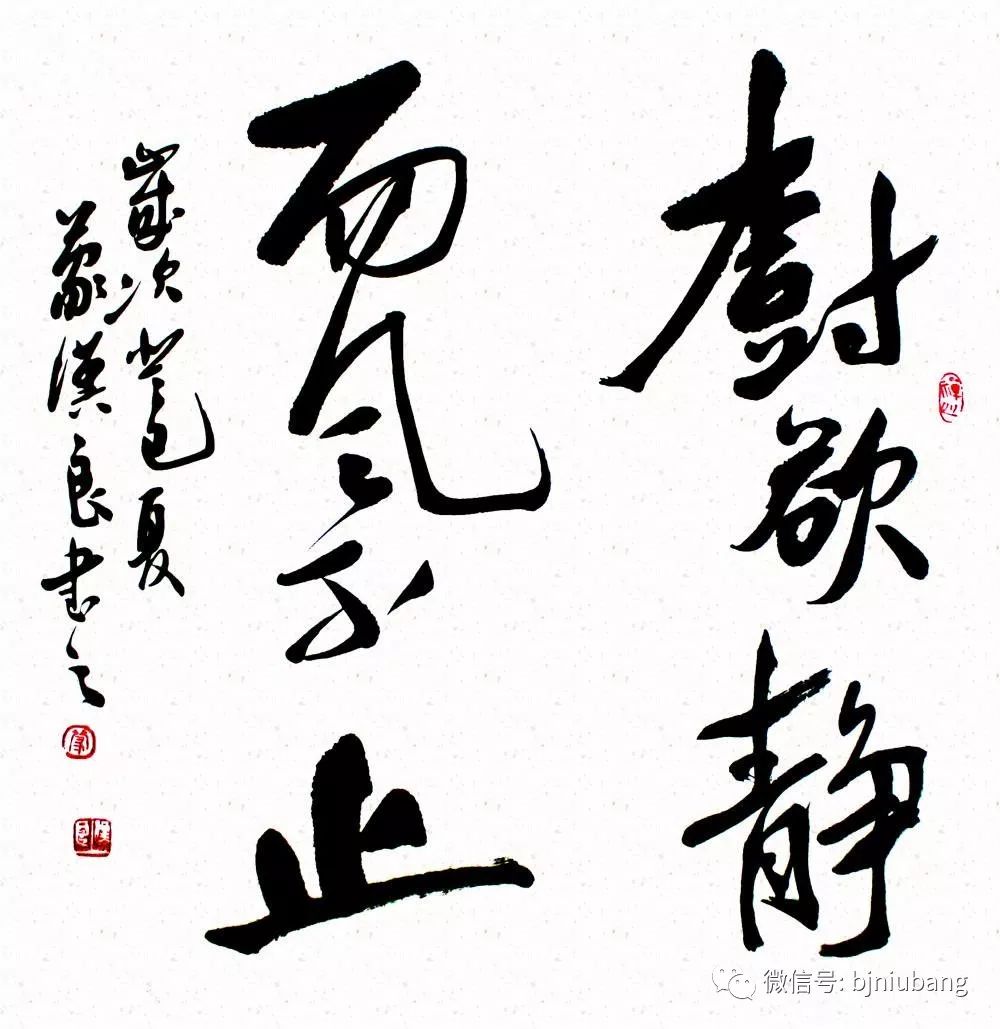 樹欲静
而風不止
歲次癸巳夏
蒙漢良書之
微信号: bjniubang